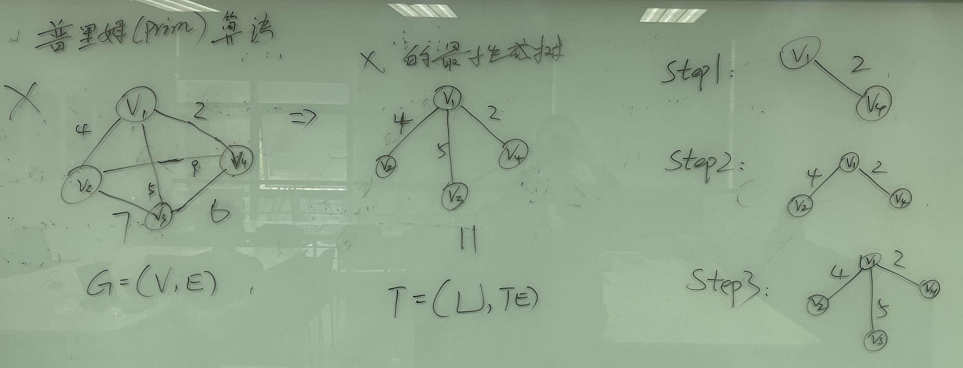 普里姆(prim)算法
X
V1
4
2
V2
8
V4
5
V3
7
6
G=(V,E)
=>
X 的最小生成树
V1
4
2
5
V2
V4
V3
11
T=(U,TE)
Step1:
V1
2
V4
Step2:
V1
4
2
V2
V4
Step3:
V1
4
2
V2
V4
5
V3